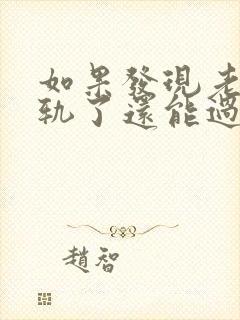 如果發現老
軌了還能過
趙智